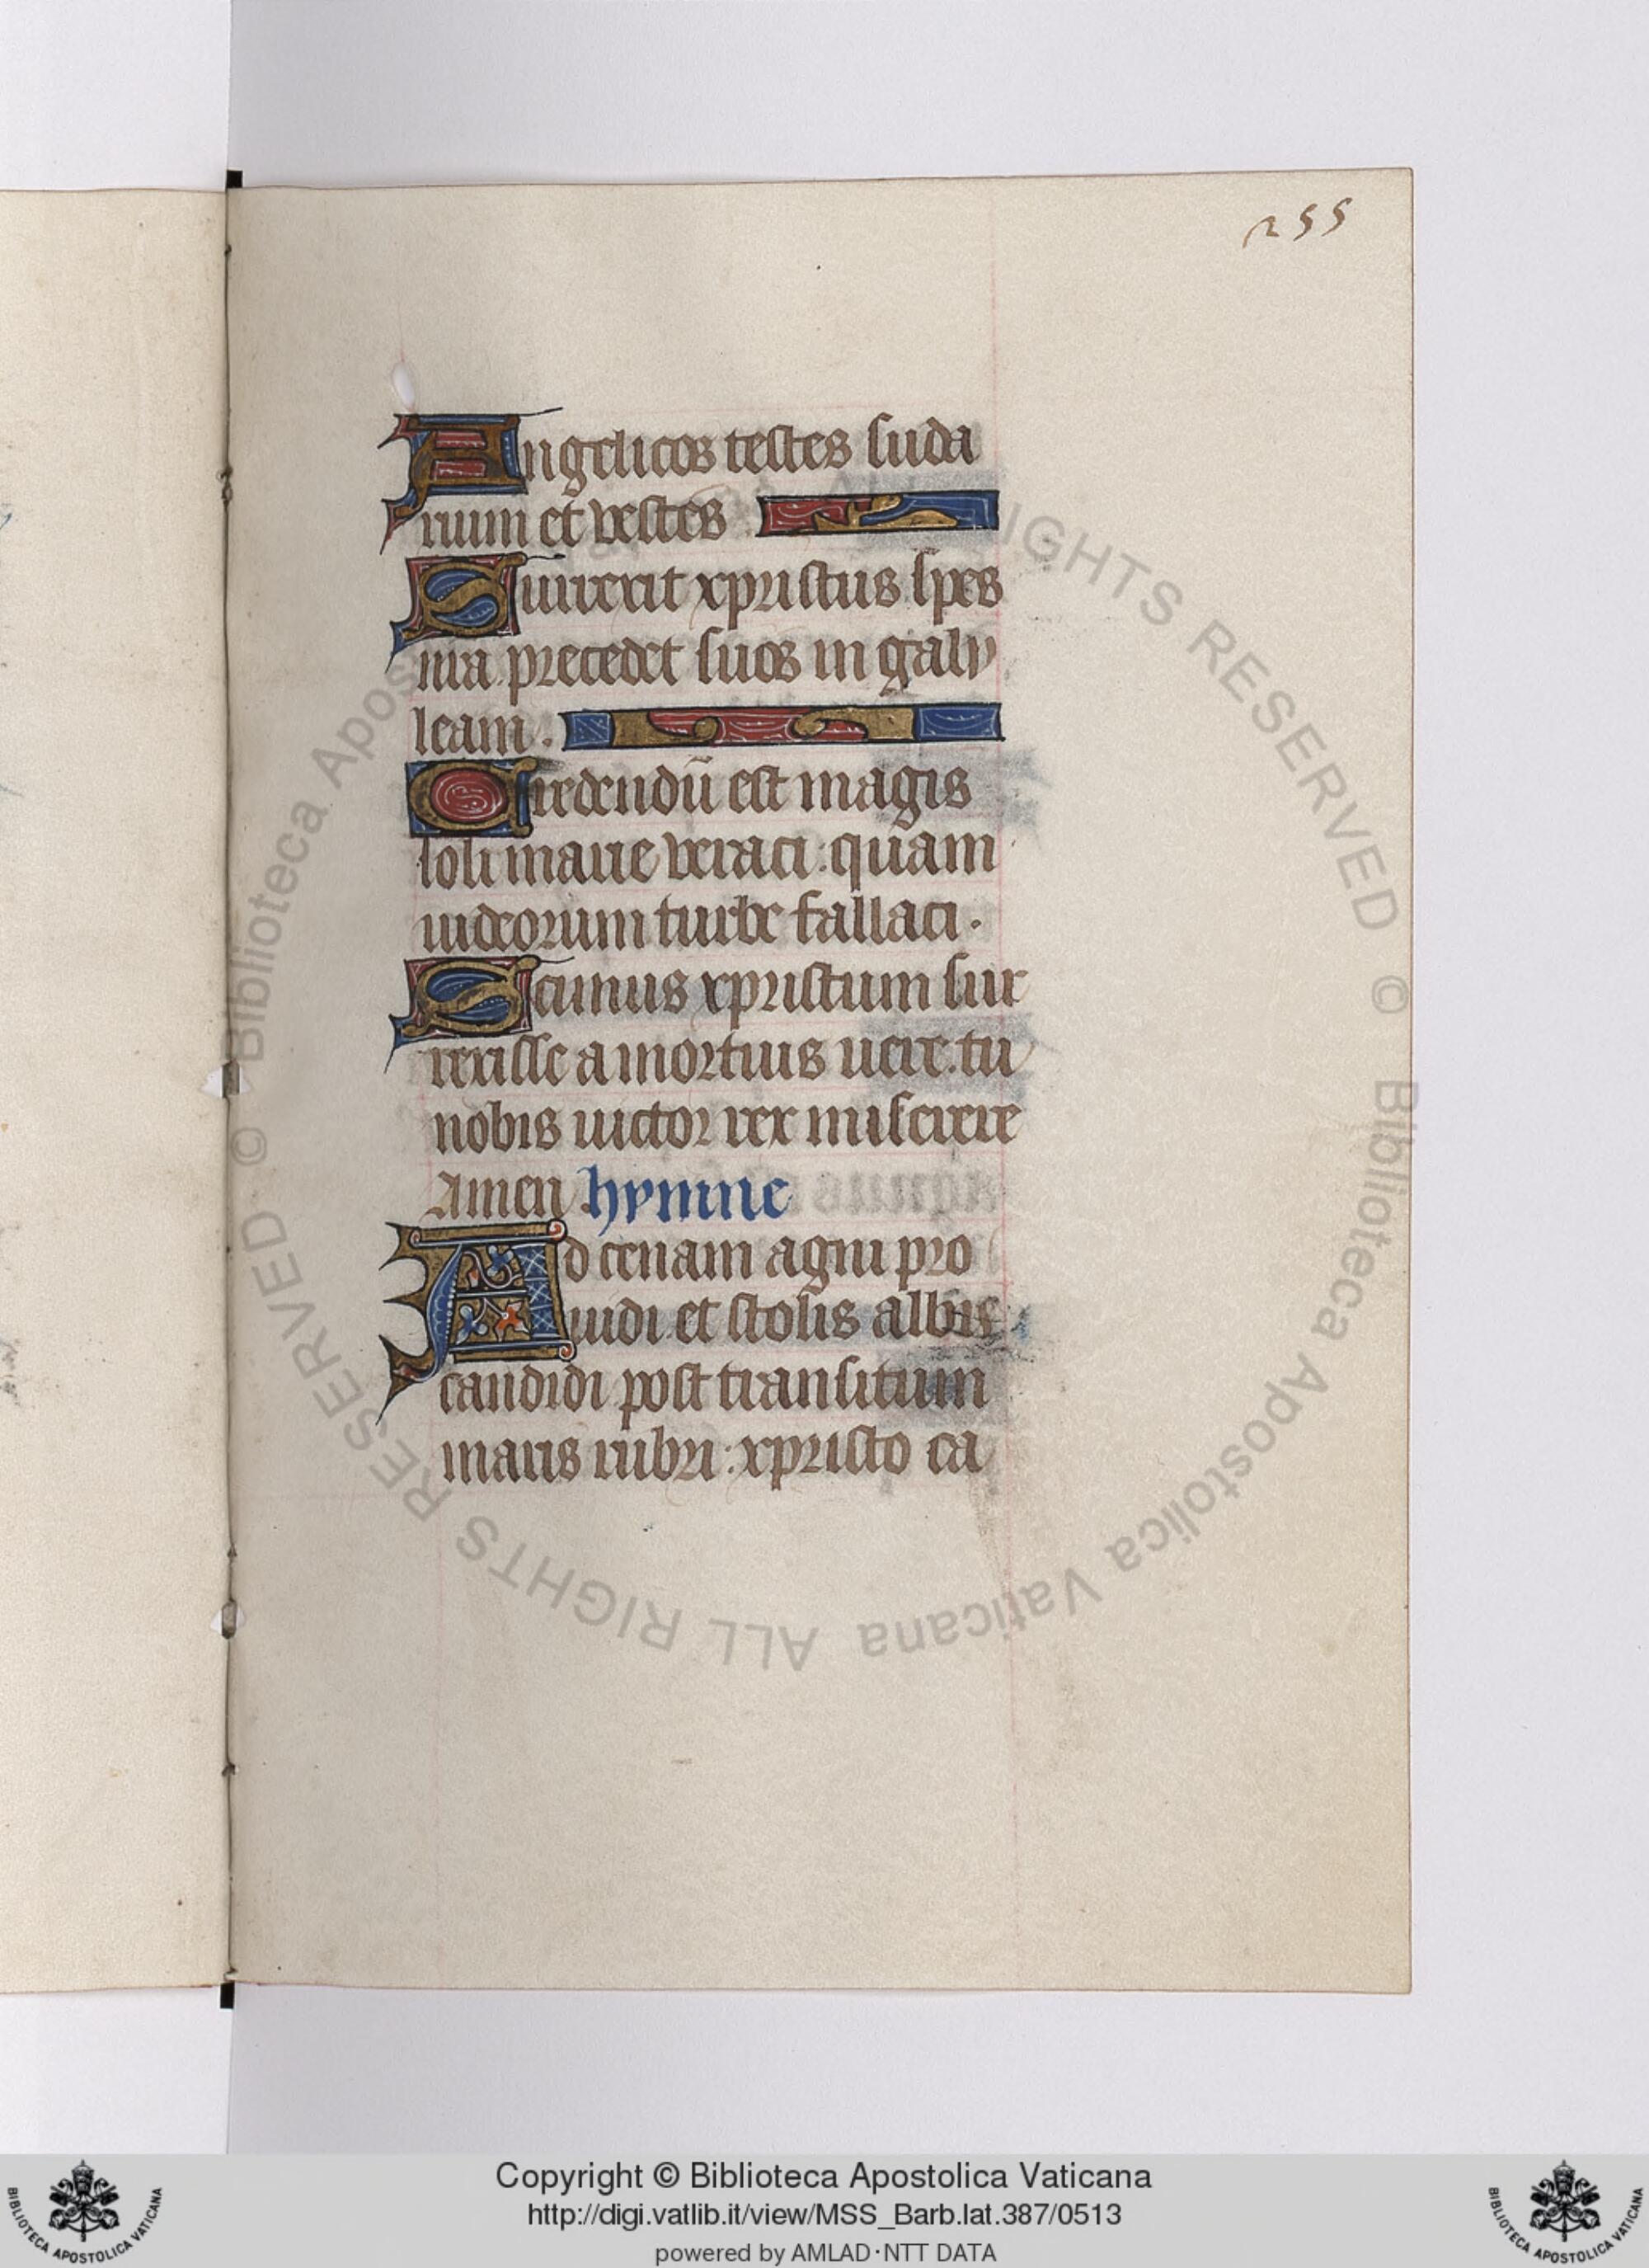 255
Angelicos testes suda
rium et vestes
Surrexit xpristus spes
mea precedet suos in galy
leam.
Credendū est magis
soli marie veraci: quam
iudeorum turbe fallaci.
Scimus xpristum sur
rexisse a mortuis uere. tu
nobis uictor rex miserere
Amen hymne
Ad cenam agni pro
uidi et stolis albis
candidi post transitum
maris rubri: xpristo ca
© Biblioteca Apostolica Vaticana ALL RIGHTS RESERVED © Biblioteca Apostolica Vaticana ALL RIGHTS RESERVED
Copyright © Biblioteca Apostolica Vaticana
http://digi.vatlib.it/view/MSS_Barb.lat.387/0513
powered by AMLAD·NTT DATA
BIBLIOTECA APOSTOLICA VATICANA
BIBLIOTECA APOSTOLICA VATICANA